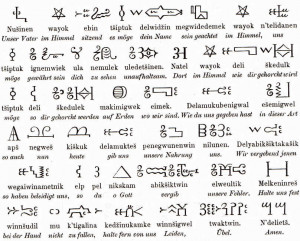 Nušinen wayok ebin tšiptuk delwidzin megwidedemek wayok n'telidanen
Unser Vater im Himmel sitzend es möge dein Name sein geachtet im Himmel, uns
tšiptuk ignemwiek ula nemulek uledetšinen. Natel wayok deli škedulk
möge gewährt sein dich zu sehen unaufhaltsam. Dort im Himmel wie dir gehorcht wird
tšiptuk deli škedulek makimigwek eimek. Delamukubenigwal ešemigwel
möge so dir gehorcht werden auf Erden wo wir sind. Wie du uns gegeben hast in dieser Art
apš negwëš kiškuk penegwunenwin nilunen.
so auch nun heute gib uns unsere Nahrung uns. Wir vergebend jenen
wegaiwinametnik elp pel nikskam abikšiktwin elweultiik
so haben beleidigt uns, so du o Gott vergib unsere Fehler. Halte uns fest
winnšudil mu k'tigalina winnšigwel twaktwin.
bei der Hand nicht zu fallen, halte fern von uns Leiden, Übel. Amen.